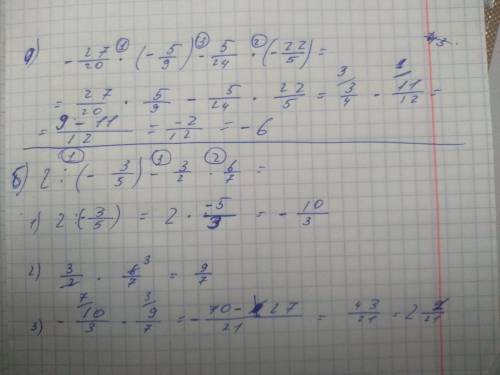 а) - 27/20 ① · (- 5/9) ③ - 5/24 ② · (- 22/5) =
= 27/20 · 5/9 - 5/24 · 22/5 = 3/4 - 11/12 =
= 9 - 11/12 = -2/12 = - 6
б) 2 ① : (- 3/5) ③ - 3/2 ② · 6/7 =
1) 2 : (- 3/5) = 2 · -5/3 = - 10/3
2) 3/2 · 6/7 = 9/7
3) - 10/3 - 9/7 = - 70 - 27/21 = 43/21 = 2